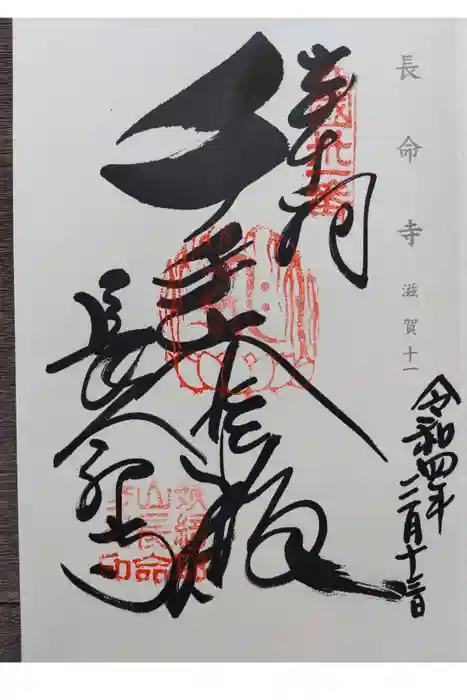 長命寺 滋賀十一
令和四年二月十三日
奉拝
西國卅一番
千手大悲殿
長命寺